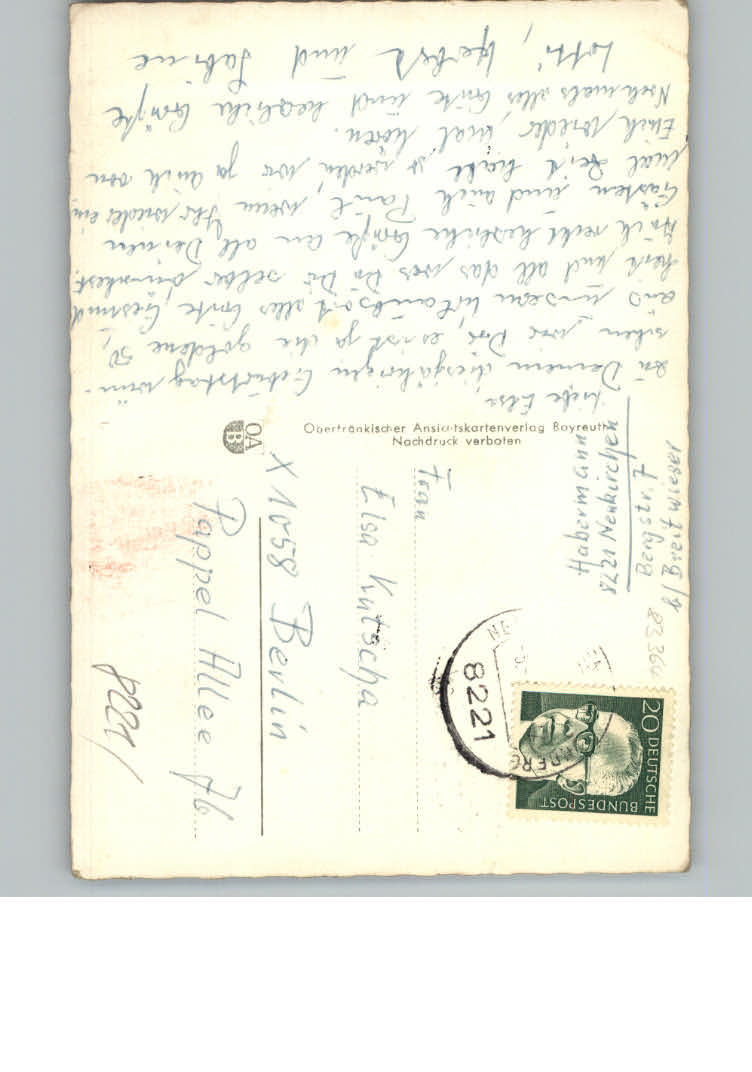 Liebe Else
zu Deinem diesjährigen Geburtstag wün-
schen wir Dir, es ist ja die goldene 50,
aus unserm Urlaubsort alles Gute, Gesund
heit und all das was Du Dir selber wünschest.
Auch recht herzliche Grüße an all Deinen
Gästen und auch Paul, wenn Ihr wieder ein
mal Zeit habt so werden wir ja auch von
Euch wieder mal hören.
Nochmals alles Gute und herzliche Grüße
Lotti, Herbert und Sabine
Oberfränkischer Ansichtskartenverlag Bayreuth
Nachdruck verboten
OAB
Habermann
8221 Neukirchen
Bergstr. 7
b/ Breitwieser
Frau
Elsa Kutscha
X 1058 Berlin
Pappel Allee 76
8221
8221
DEUTSCHE
BUNDESPOST
20